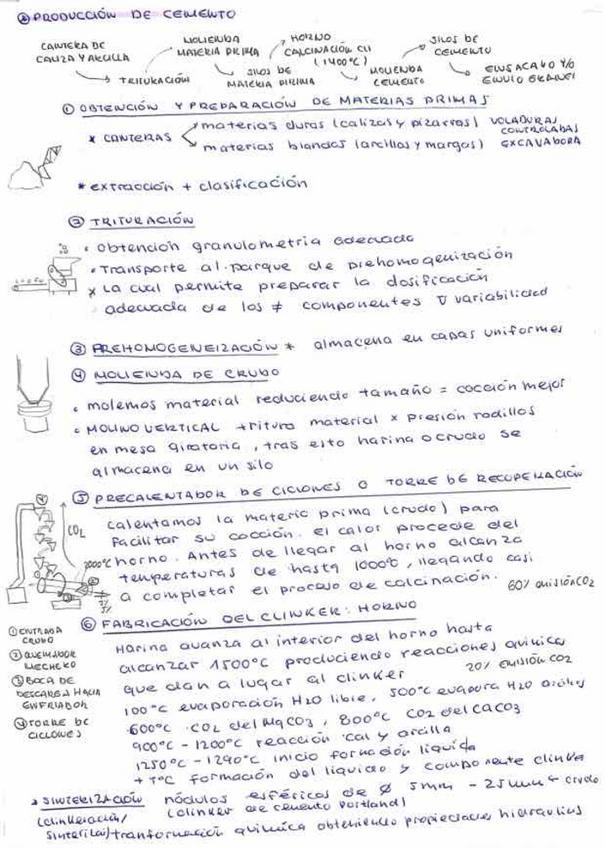 ② PRODUCCIÓN DE CEMENTO
CANTERA DE CALIZA Y ARCILLA → TRITURACIÓN → MOLIENDA MATERIA PRIMA → SILOS DE MATERIA PRIMA → HORNO CALCINACIÓN CLI (1400ºC) → MOLIENDA CEMENTO → SILOS DE CEMENTO → ENSACADO Y/O ENVIO GRANEL
① OBTENCIÓN Y PREPARACIÓN DE MATERIAS PRIMAS
* CANTERAS
materias duras (calizas y pizarras) VOLADURAS CONTROLADAS
materias blandas (arcillas y margas) EXCAVADORA
* extracción + clasificación
② TRITURACIÓN
• Obtención granulometría adecuada
• Transporte al parque de prehomogenización
* La cual permite preparar la dosificación
adecuada de los ≠ componentes ∇ variabilidad
③ PREHOMOGENEIZACIÓN * almacena en capas uniformes
④ MOLIENDA DE CRUDO
• molemos material reduciendo tamaño = cocción mejor
• MOLINO VERTICAL tritura material x presión rodillos
en mesa giratoria, tras esto harina o crudo se
almacena en un silo
⑤ PRECALENTADOR DE CICLONES O TORRE DE RECUPERACIÓN
calentamos la materia prima (crudo) para
facilitar su cocción. el calor procede del
horno. Antes de llegar al horno alcanza
temperaturas de hasta 1000ºC, llegando casi
a completar el proceso de calcinación. 60% emisión CO2
CO2
2000ºC
⑥ FABRICACIÓN DEL CLINKER: HORNO
① ENTRADA CRUDO
② QUEMADOR MECHERO
③ BOCA DE DESCARGA HACIA ENFRIADOR
④ TORRE DE CICLONES
Harina avanza al interior del horno hasta
alcanzar 1500ºC produciendo reacciones químicas
que dan a lugar al clinker 20% emisión CO2
100ºC evaporación H2O libre, 500ºC evapora H2O arcillas
600ºC CO2 del MgCO3, 800ºC CO2 del CaCO3
900ºC - 1200ºC reacción cal y arcilla
1250ºC - 1290ºC inicio formación líquida
+ TºC formación del líquido y componente clinker
* SINTERIZACIÓN nódulos esféricos de ø 5mm - 25mm + crudo
(clinkeración/ (clinker de cemento Portland)
sinterizar) transformación química obteniendo propiedades hidraulicas